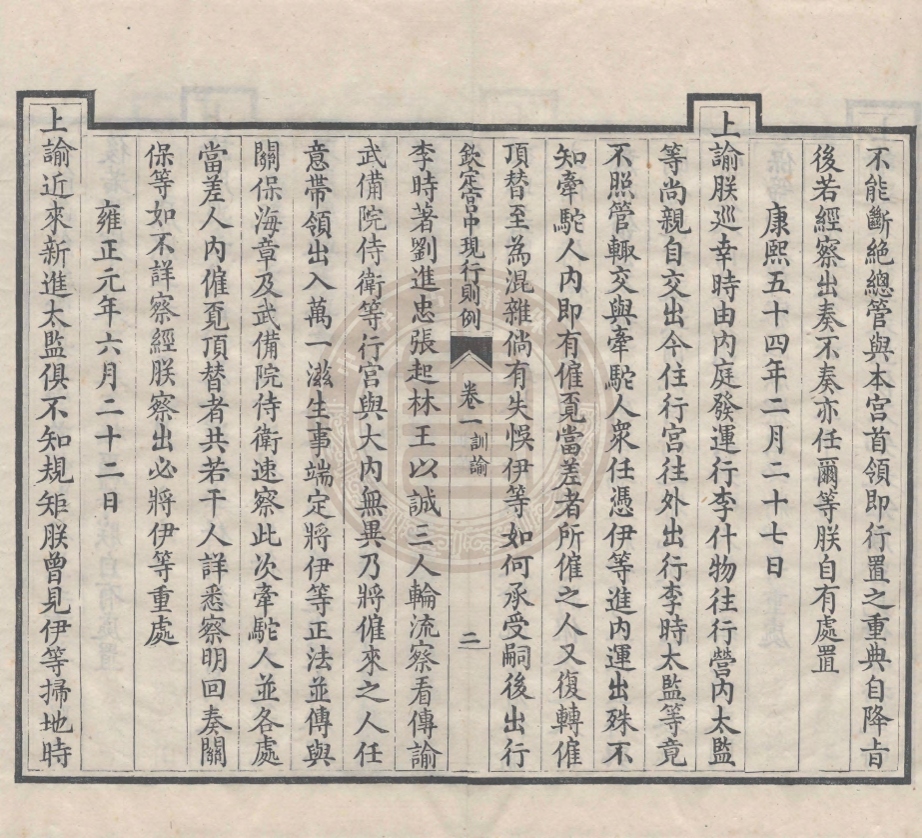 不能斷絕總管與本宮首領即行置之重典自降旨
後若經察出奏不奏亦任爾等朕自有處置
康熙五十四年二月二十七日
上諭朕巡幸時由內庭發運行李什物往行營內太監
等尚親自交出今住行宮往外出行李時太監等竟
不照管輙交與牽駝人衆任憑伊等進內運出殊不
知牽駝人內即有僱覔當差者所僱之人又復轉僱
頂替至為混雜倘有失悞伊等如何承受嗣後出行
欽定宮中現行則例 卷一 訓諭 二
李時著劉進忠張起林王以誠三人輪流察看傳諭
武備院侍衛等行宮與大內無異乃將僱來之人任
意帶領出入萬一滋生事端定將伊等正法並傳與
關保海章及武備院侍衛速察此次牽駝人並各處
當差人內僱覔頂替者共若干人詳悉察明回奏關
保等如不詳察經朕察出必將伊等重處
雍正元年六月二十二日
上諭近來新進太監俱不知規矩朕曾見伊等掃地時